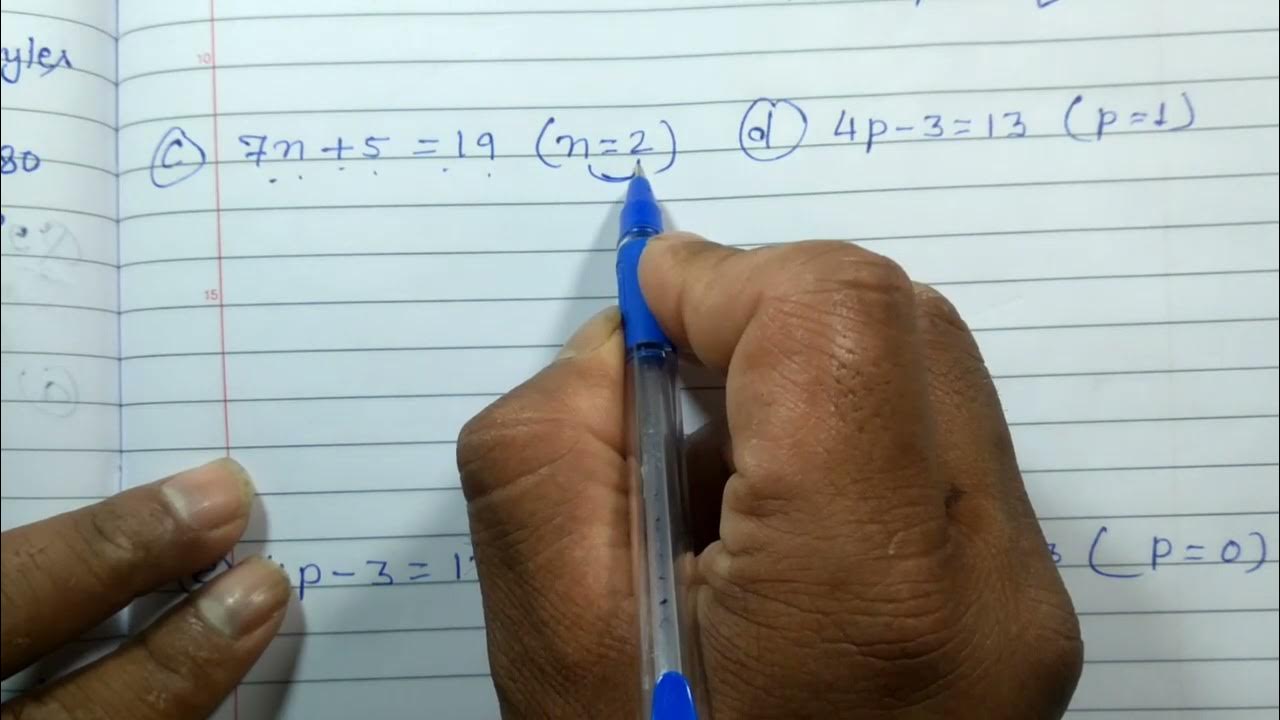 yles
10
80
c 7n + 5 = 19 (n = 2) d 4p - 3 = 13 (p = 1)
15
p - 3 = 1 (p = 0)